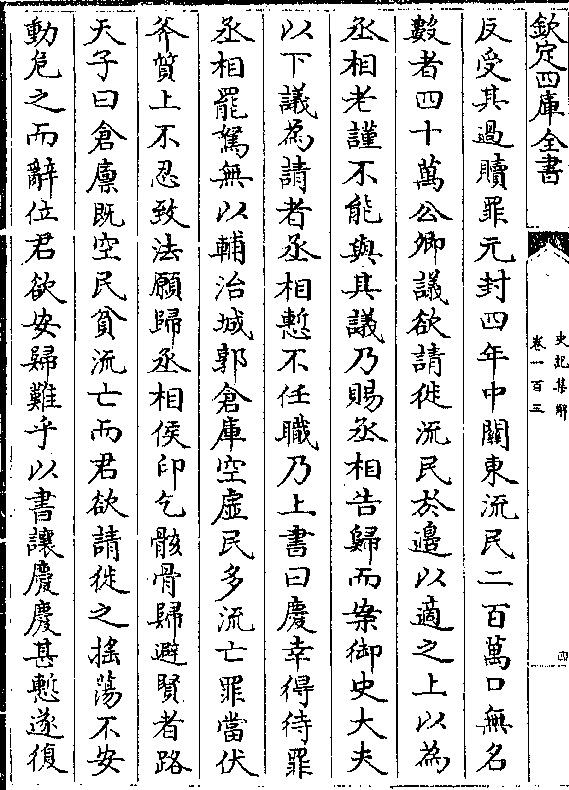 欽定四庫全書
史記集解
卷一百三
四
反受其過贖罪元封四年中關東流民二百萬口無名
數者四十萬公卿議欲請徙流民於邊以適之上以為
丞相老謹不能與其議乃賜丞相告歸而案御史大夫
以下議為請者丞相慙不任職乃上書曰慶幸得待罪
丞相罷駑無以輔治城郭倉庫空虛民多流亡罪當伏
斧質上不忍致法願歸丞相侯印乞骸骨歸避賢者路
天子曰倉廪既空民貧流亡而君欲請徙之搖蕩不安
動危之而辭位君欲安歸難乎以書讓慶慶甚慙遂復